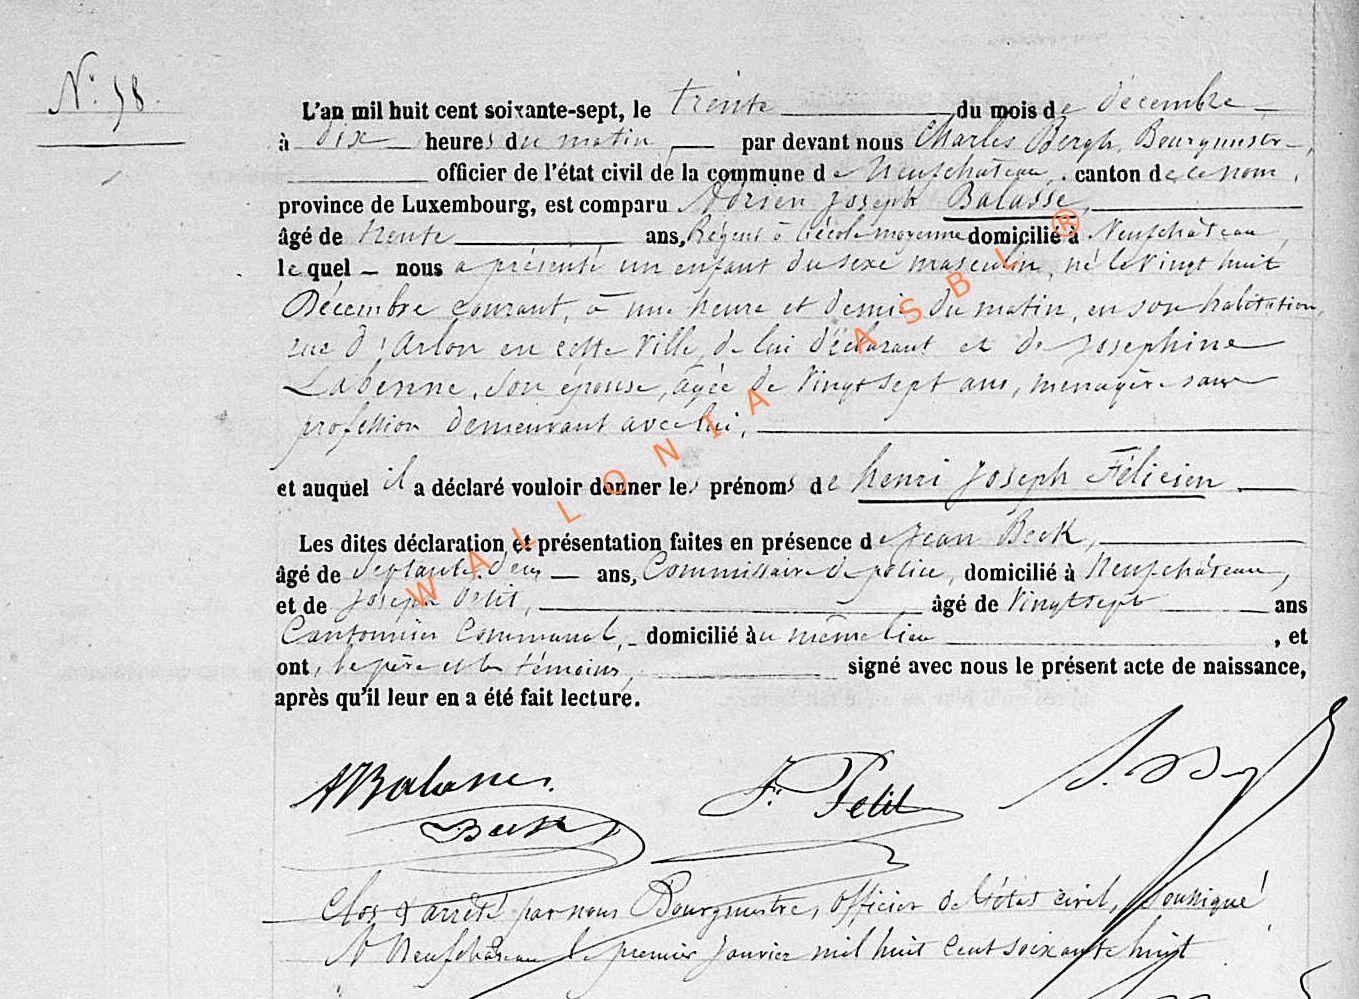 N° 58.
L'an mil huit cent soixante-sept, le trente du mois de décembre
à dix heures du matin, par devant nous Charles Bergh, Bourgmestre,
officier de l'état civil de la commune de Neufchâteau, canton de ce nom,
province de Luxembourg, est comparu Adrien Joseph Balasse,
âgé de trente ans, Régent à l'école moyenne domicilié à Neufchâteau,
lequel nous a présenté un enfant du sexe masculin, né le vingt huit
Décembre courant, à une heure et demie du matin, en son habitation,
rue d'Arlon en cette ville, de lui déclarant et de Josephine
son épouse, âgée de vingt sept ans, ménagère sans
profession demeurant avec lui,
et auquel il a déclaré vouloir donner les prénoms de henri Joseph Félicien
Les dites déclaration et présentation faites en présence de Jean Beck,
âgé de Septante deux ans, Commissaire de police, domicilié à Neufchâteau,
et de Joseph Petit, âgé de Vingt sept ans
Cantonnier Communal, domicilié au même lieu, et
ont, le père et les témoins, signé avec nous le présent acte de naissance,
après qu'il leur en a été fait lecture.
AJBalasse.
J. Petit
Beck
Clos & arrêté par nous Bourgmestre, officier de l'état civil, soussigné
A Neufchâteau le premier Janvier mil huit cent soixante huit
WALLONIA ASBL ®